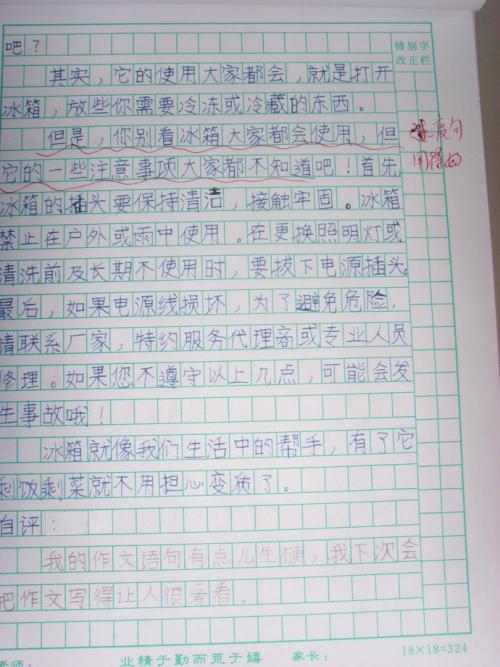 吧？
错别字
改正栏
其实，它的使用大家都会，就是打开
冰箱，放些你需要冷冻或冷藏的东西。
但是，你别看冰箱大家都会使用，但
它的一些注意事项大家都不知道吧！首先，
冰箱的插头要保持清洁，接触牢固。冰箱
禁止在户外或雨中使用。在更换照明灯或
清洗前及长期不使用时，要拔下电源插头。
最后，如果电源线损坏，为了避免危险，
请联系厂家，特约服务代理商或专业人员
修理。如果您不遵守以上几点，可能会发
生事故哦！
冰箱就像我们生活中的帮手，有了它
剩饭剩菜就不用担心变质了。
自评：
我的作文语句有点儿生硬，我下次会
把作文写得让人很爱看。
老师：
业精于勤而荒于嬉
家长：
18×18=324